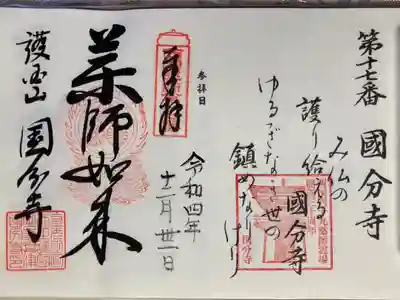 第十七番 國分寺
み仏の
護り給える
國分寺
ゆるぎなき世の
鎮めなりけり
参拝日
奉拝
令和四年
薬師如来
護国山 国分寺